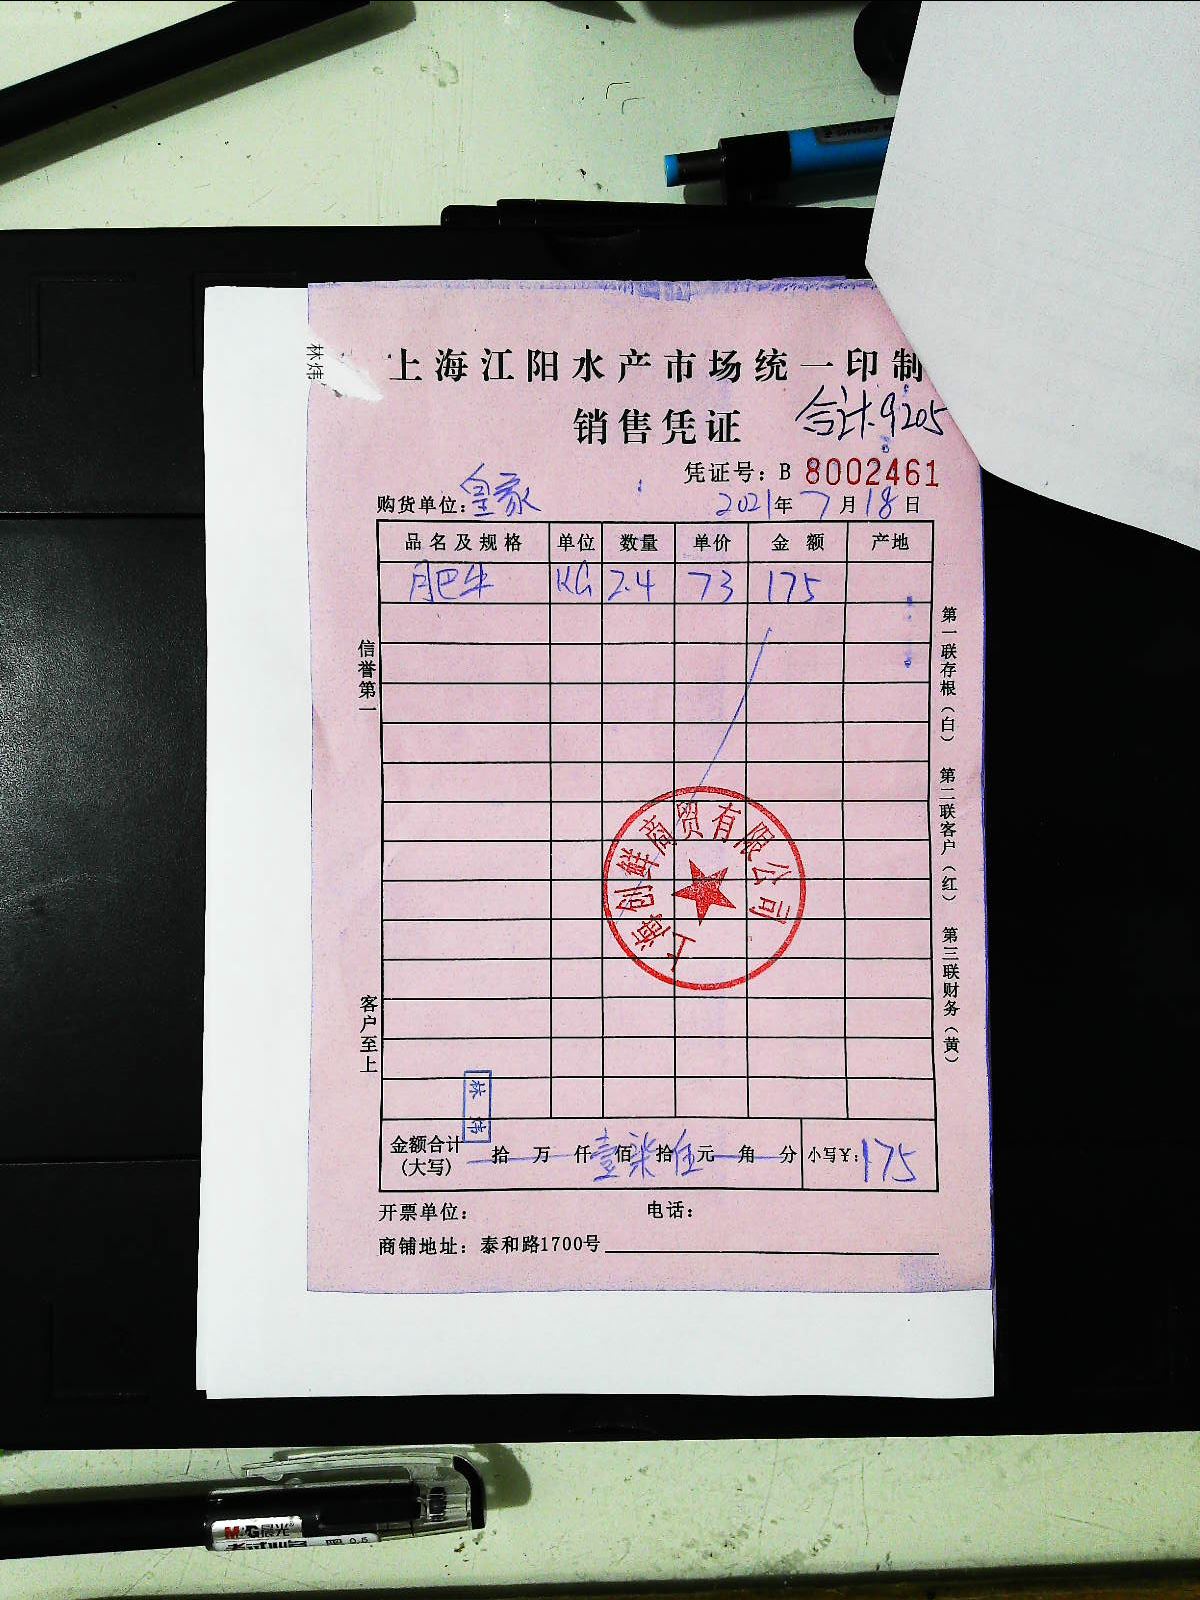 上海江阳水产市场统一印制
销售凭证
合计:9205
凭证号: B 8002461
购货单位: 皇家 2021年 7月18日
品名及规格 单位 数量 单价 金额 产地
肥牛 KG 2.4 73 175
信誉第一
客户至上
第一联存根(白) 第二联客户(红) 第三联财务(黄)
上海创鲜商贸有限公司
金额合计(大写) 拾 万 仟 壹佰 柒拾 伍元 角 分 小写¥: 175
开票单位: 电话:
商铺地址: 泰和路1700号
林炜
M&G晨光
0.5